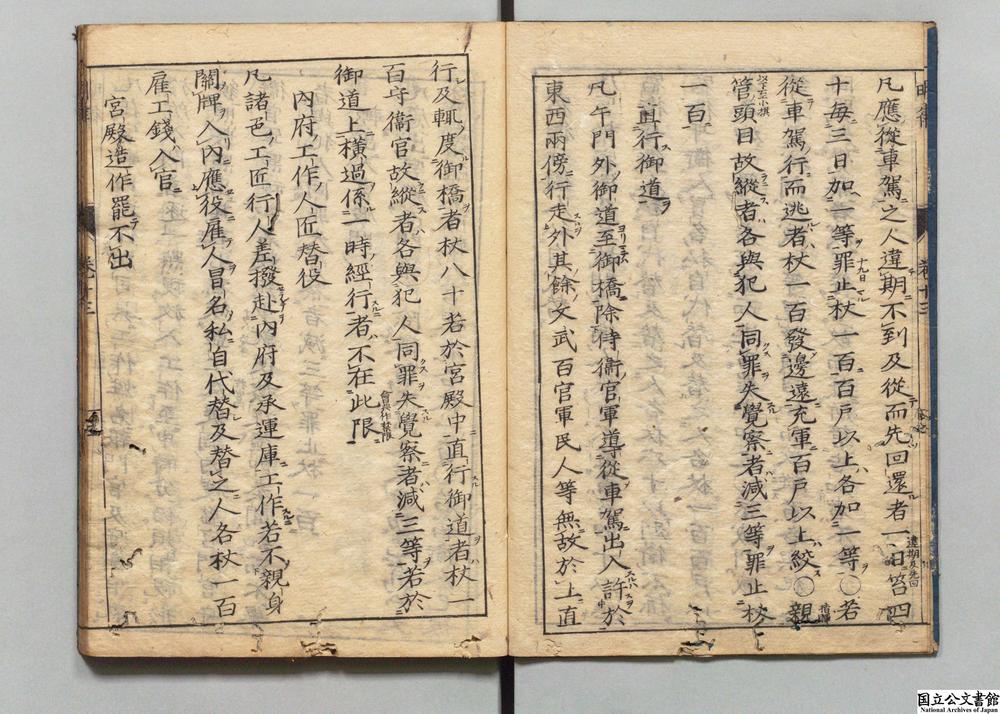 凡應從車駕之人違期不到及從而先回還者一日笞四
十每三日加一等罪止杖一百百戶以上各加一等○若
從車駕行而逃者杖一百發邊遠充軍百戶以上絞○親
管頭目故縱者各與犯人同罪失覺察者減三等罪止杖
一百
直行御道
凡午門外御道至御橋除侍衞官軍導從車駕出入許於
東西兩傍行走外其餘文武百官軍民人等無故於上直
行及輒度御橋者杖八十若於宮殿中直行御道者杖一
百守衞官故縱者各與犯人同罪失覺察者減三等若於
御道上橫過係一時經行者不在此限
內府工作人匠替役
凡諸色工匠行人差撥赴內府及承運庫工作若不親身
關牌入內應役雇人冒名私自代替及替之人各杖一百
雇工錢入官
宮殿造作罷不出
卷十三
卷十三
国立公文書館
National Archives of Japan